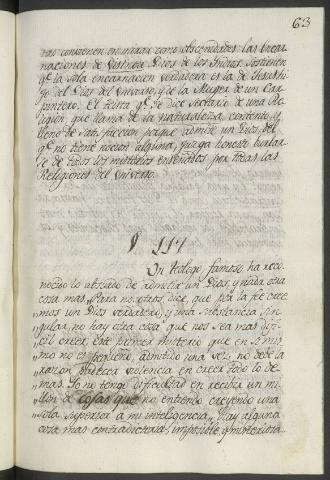 63
tas convienen en mirar como Ascendidas las Encar
naciones de Vistnou Dios de los Indios. Sostienen
qe. la sola encarnacion verdadera es la de Jesus hi
jo del Dios del Universo, y de la Muger de un Car
pintero. El Deista qe. se dice Sectario de una Re
ligion que llama de la naturaleza, contento, y
lleno de Satisfaccion porque admite un Dios del
qe. no tiene nocion alguna, juzga honesto burlar
se de todos los misterios enseñados por todas las
Religiones del Universo.
§ 117
Un Teologo famoso ha reco
nocido lo absurdo de admitir un Dios, y nada otra
cosa mas. Para nosotros, dice, que por la fe cree
mos un Dios verdadero, y una substancia sin
gular, no hay otra cosa que nos sea mas difi
cil creer. Este primer misterio que en si mis
mo no es pequeño, admitido una vez, no debe la
razon padecer violencia en creer todo lo de
mas. Yo no tengo dificultad en recibir un mi
llon de cosas que no entiendo creyendo una
sola superior a mi inteligencia. Hay alguna
cosa mas contradictoria, imposible, y misteriosa